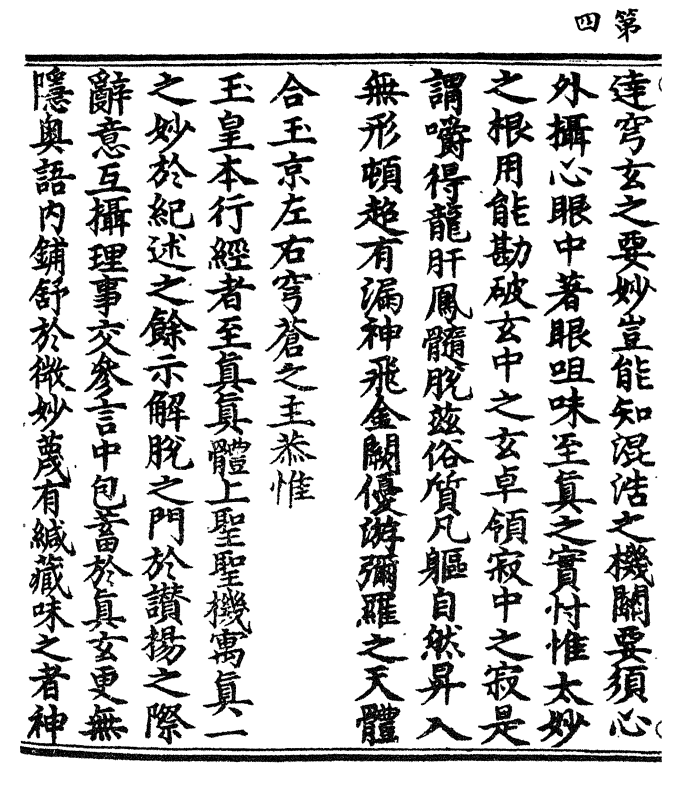 第四
達穹玄之要妙豈能知混浩之機關要須心
外攝心眼中著眼咀味至真之實忖惟太妙
之根用能勘破玄中之玄卓領寂中之寂是
謂嚼得龍肝鳳髓脫茲俗質凡軀自然昇入
無形頓超有漏神飛金闕優游彌羅之天體
合玉京左右穹蒼之主恭惟
玉皇本行經者至真真體上聖聖機寓真一
之妙於紀述之餘示解脫之門於讃揚之際
辭意互攝理事交參言中包蓄於真玄更無
隱奧語內鋪舒於微妙蔑有緘藏味之者神